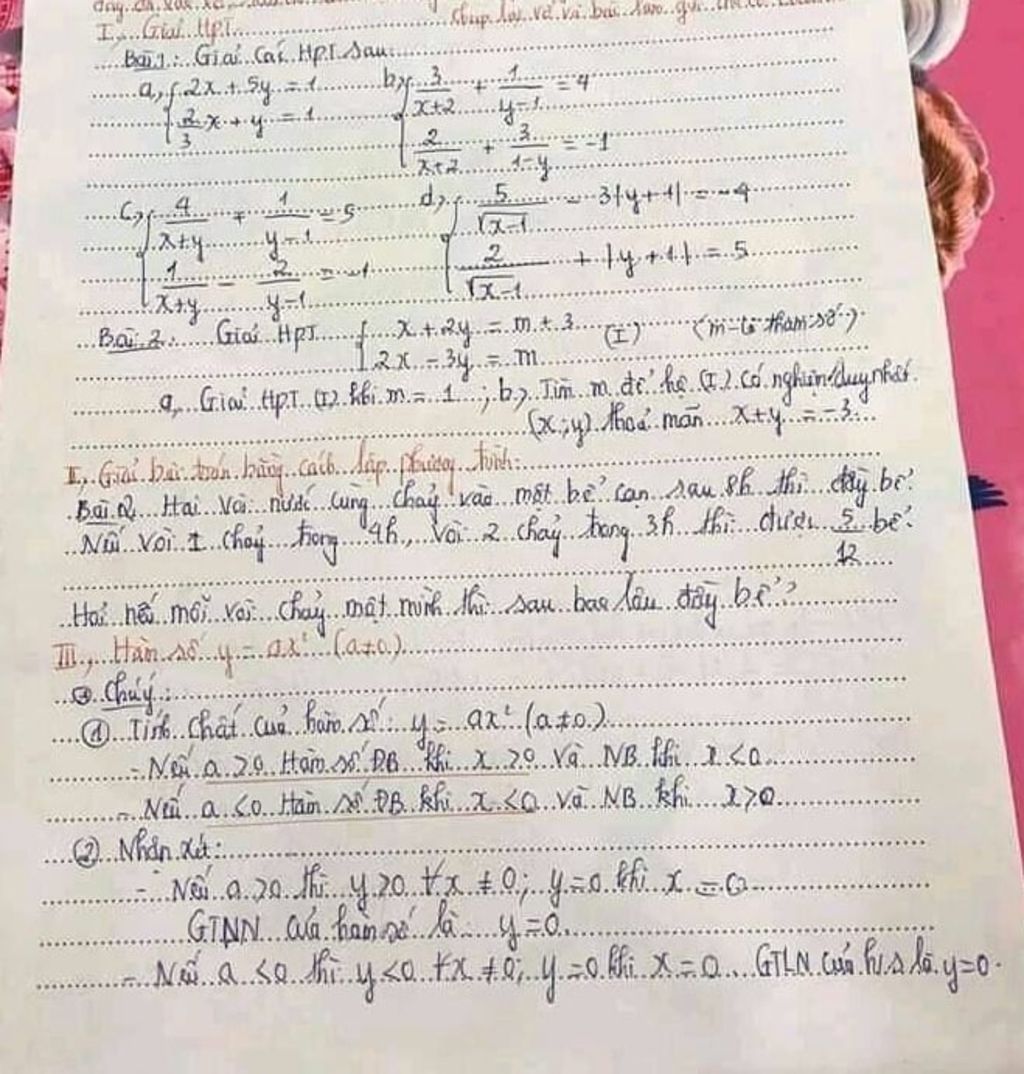 I, Giải HPT
chụp lại vở và bài làm gửi
Bài 1: Giải các HPT sau:
a, { 2x + 5y = 1 b, { 3/(x+2) + 1/(y-1) = 4
2/3 x + y = 1
2/(x+2) + 3/(1-y) = -1
c, { 4/(x+y) + 1/(y-1) = 5 d, { 5/√(x-1) - 3|y+1| = -4
1/(x+y) - 2/(y-1) = -1 2/√(x-1) + |y+1| = 5
Bài 2: Giải HPT { x + 2y = m + 3 (I) (m-là tham số)
2x - 3y = m
a, Giải HPT (I) khi m = 1; b, Tìm m để hệ (I) có nghiệm duy nhất
(x;y) thoả mãn x+y = -3.
II, Giải bài toán bằng cách lập phương trình:
Bài 2 Hai vòi nước cùng chảy vào một bể cạn sau 8h thì đầy bể.
Nếu vòi 1 chảy trong 4h, vòi 2 chảy trong 3h thì được 5/12 bể.
Hỏi nếu mỗi vòi chảy một mình thì sau bao lâu đầy bể?
III, Hàm số y = ax² (a≠0)
Chú ý:
① Tính chất của hàm số: y = ax² (a≠0)
- Nếu a>0 Hàm số ĐB khi x>0 và NB khi x<0
- Nếu a<0 Hàm số ĐB khi x<0 và NB khi x>0
② Nhận xét:
- Nếu a>0 thì y>0 ∀x ≠ 0; y=0 khi x = 0
GTNN của hàm số là y=0
- Nếu a<0 thì y<0 ∀x ≠ 0; y=0 khi x=0 GTLN của h.s là y=0.